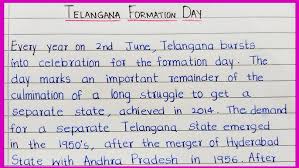 Telangana Formation Day
Every year on 2nd June, Telangana bursts
into celebration for the formation day. The
day marks an important remainder of the
culmination of a long struggle to get a
separate state, achieved in 2014. The demand
for a separate Telangana State emerged
in the 1950's, after the merger of Hyderabad
State with Andhra Pradesh in 1956. After